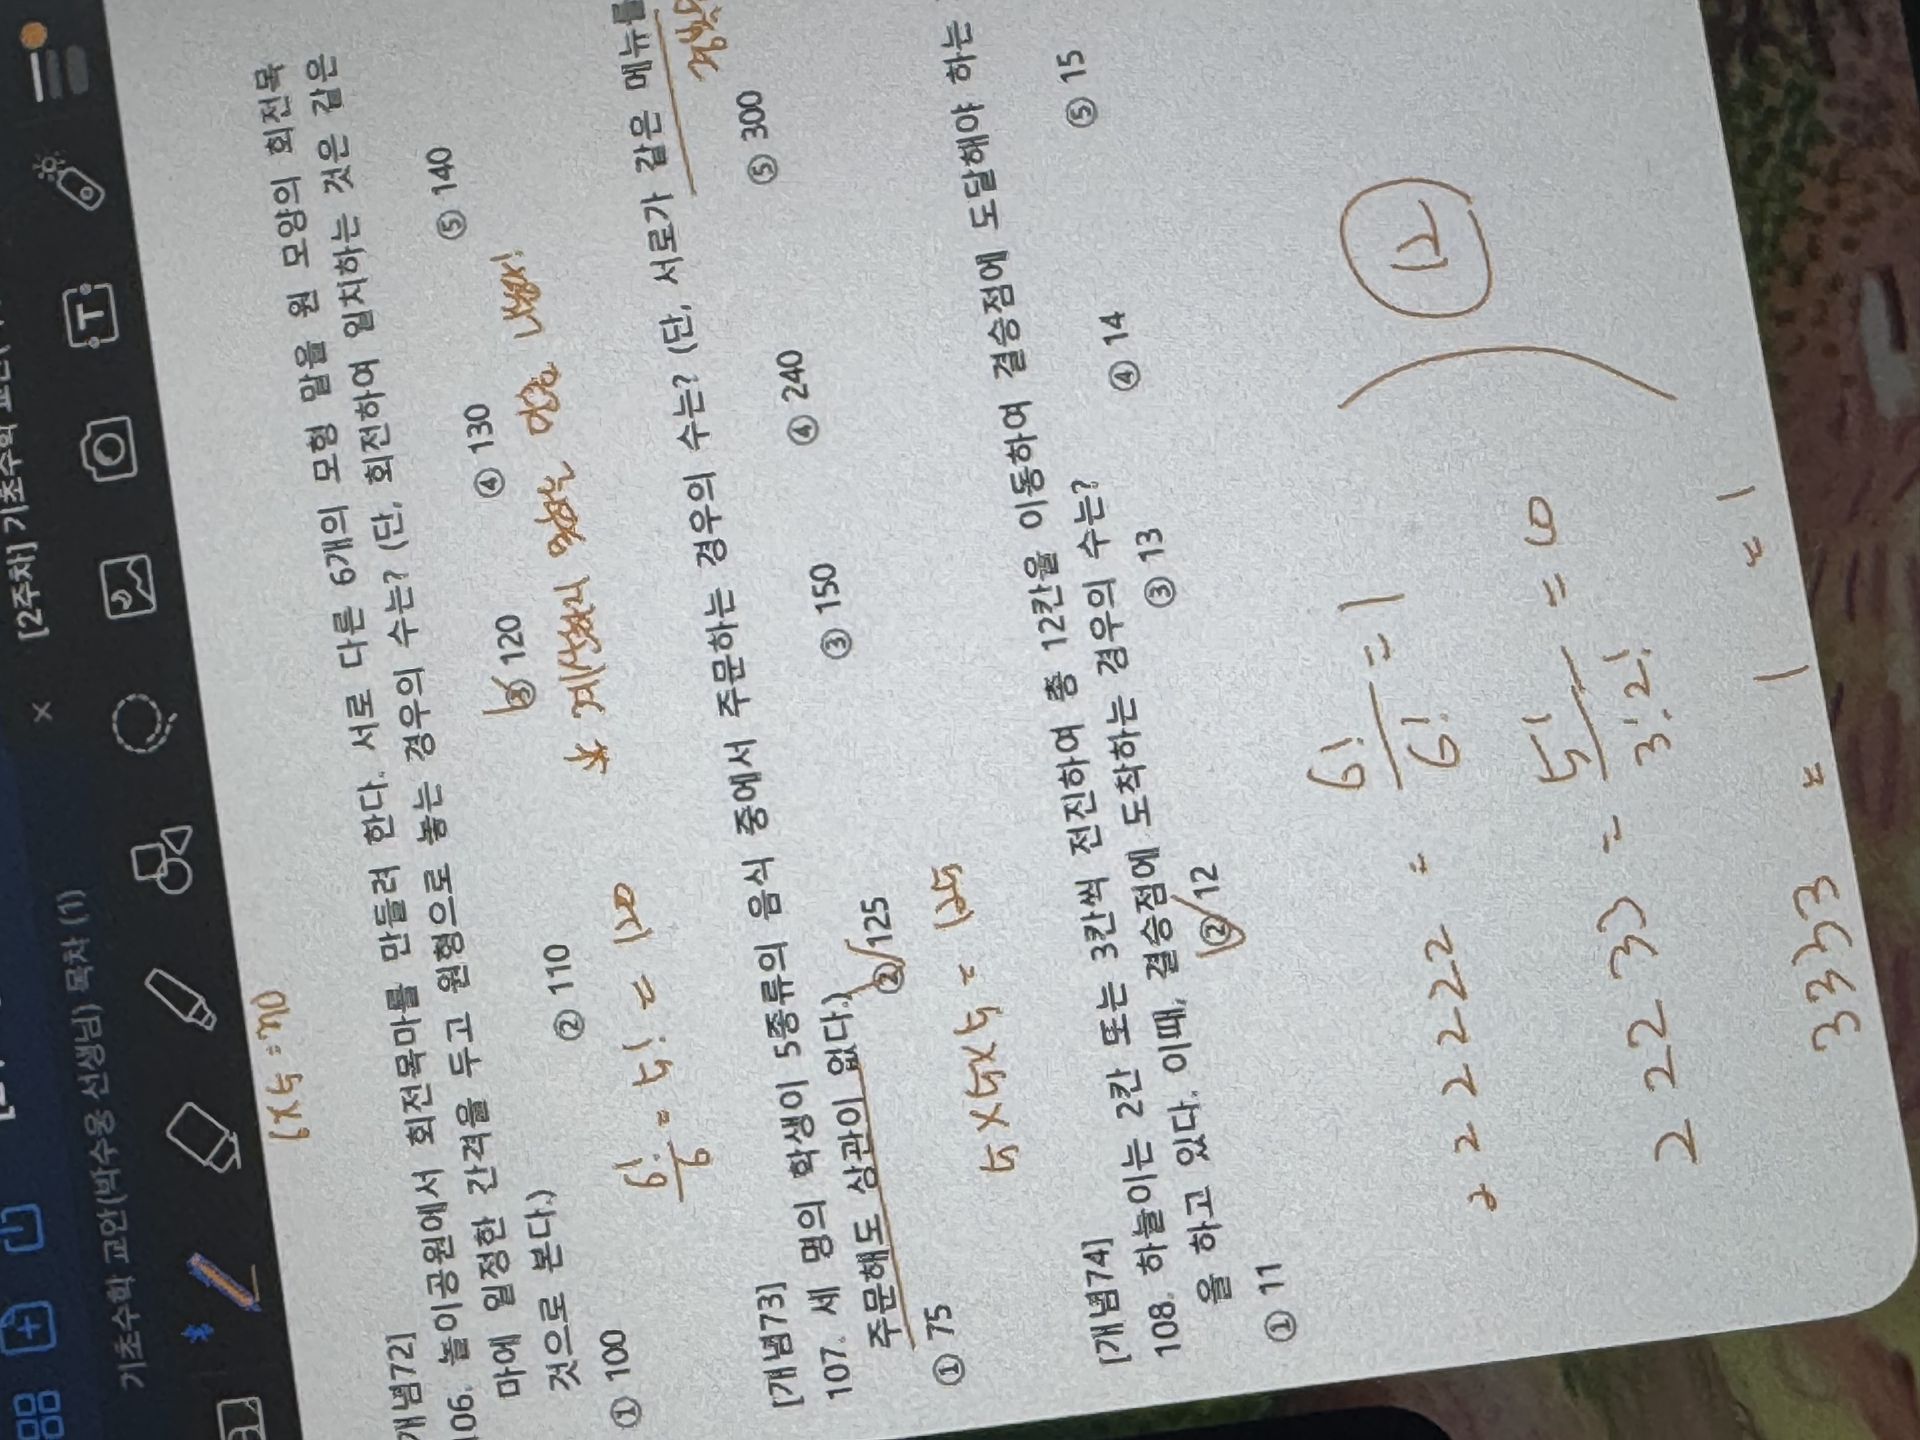 [2주차] 기초수학
기초수학 교안(박수웅 선생님) 목차 (1)
6×5=30
개념72]
106. 놀이공원에서 회전목마를 만들려 한다. 서로 다른 6개의 모형 말을 원 모양의 회전목
마에 일정한 간격을 두고 원형으로 놓는 경우의 수는? (단, 회전하여 일치하는 것은 같은
것으로 본다.)
① 100 ② 110 ③ 120 ④ 130 ⑤ 140
6!/6 = 5! = 120
[개념73]
107. 세 명의 학생이 5종류의 음식 중에서 주문하는 경우의 수는? (단, 서로가 같은 메뉴를
주문해도 상관이 없다.)
① 75 ② 125 ③ 150 ④ 240 ⑤ 300
5×5×5 = 125
[개념74]
108. 하늘이는 2칸 또는 3칸씩 전진하여 총 12칸을 이동하여 결승점에 도달해야 하는
을 하고 있다. 이때, 결승점에 도착하는 경우의 수는?
① 11 ② 12 ③ 13 ④ 14 ⑤ 15
2 2 2 2 2 2 = 6!/6! = 1
2 2 2 3 3 = 5!/3!2! = 10
3 3 3 3 = 1 = 1
12